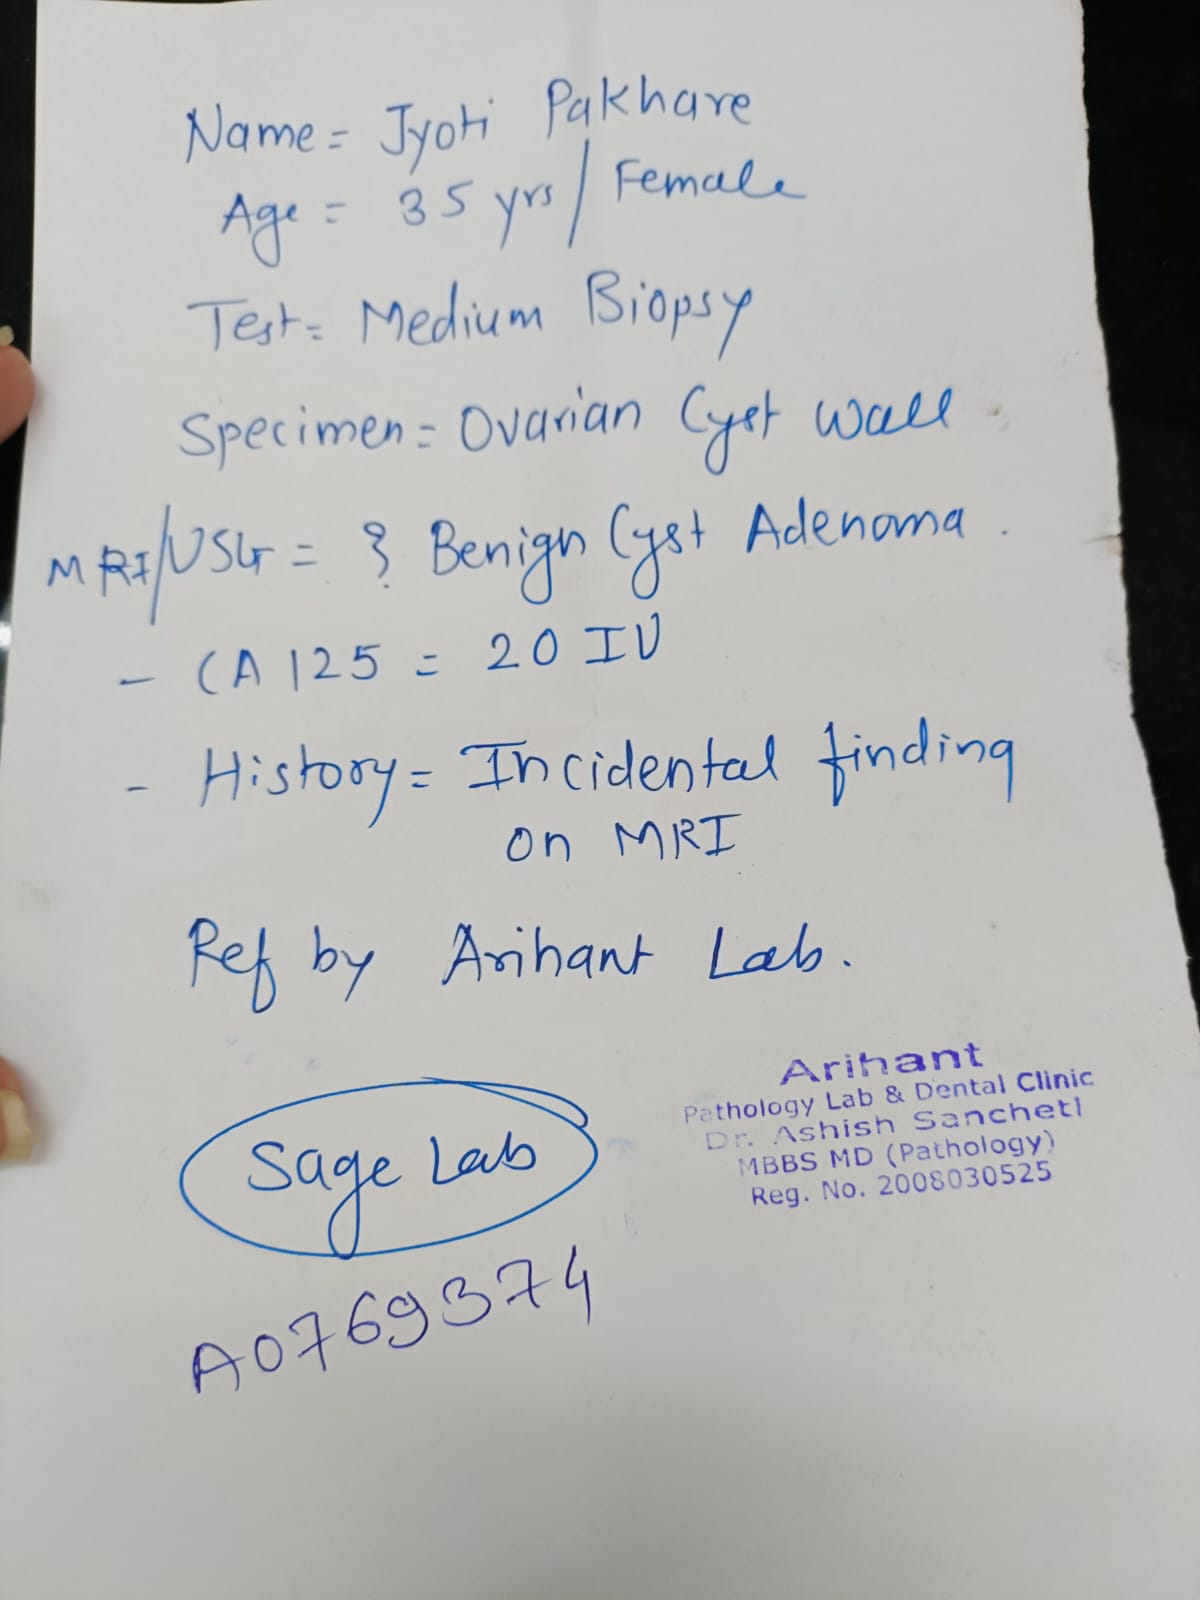 Name = Jyoti Pakhare
Age = 35 yrs / Female
Test = Medium Biopsy
Specimen = Ovarian Cyst wall
MRI/USG = ? Benign Cyst Adenoma.
- CA 125 = 20 IU
- History = Incidental finding
on MRI
Ref by Arihant Lab.
Sage Lab
A0769374
Arihant
Pathology Lab & Dental Clinic
Dr. Ashish Sancheti
MBBS MD (Pathology)
Reg. No. 2008030525